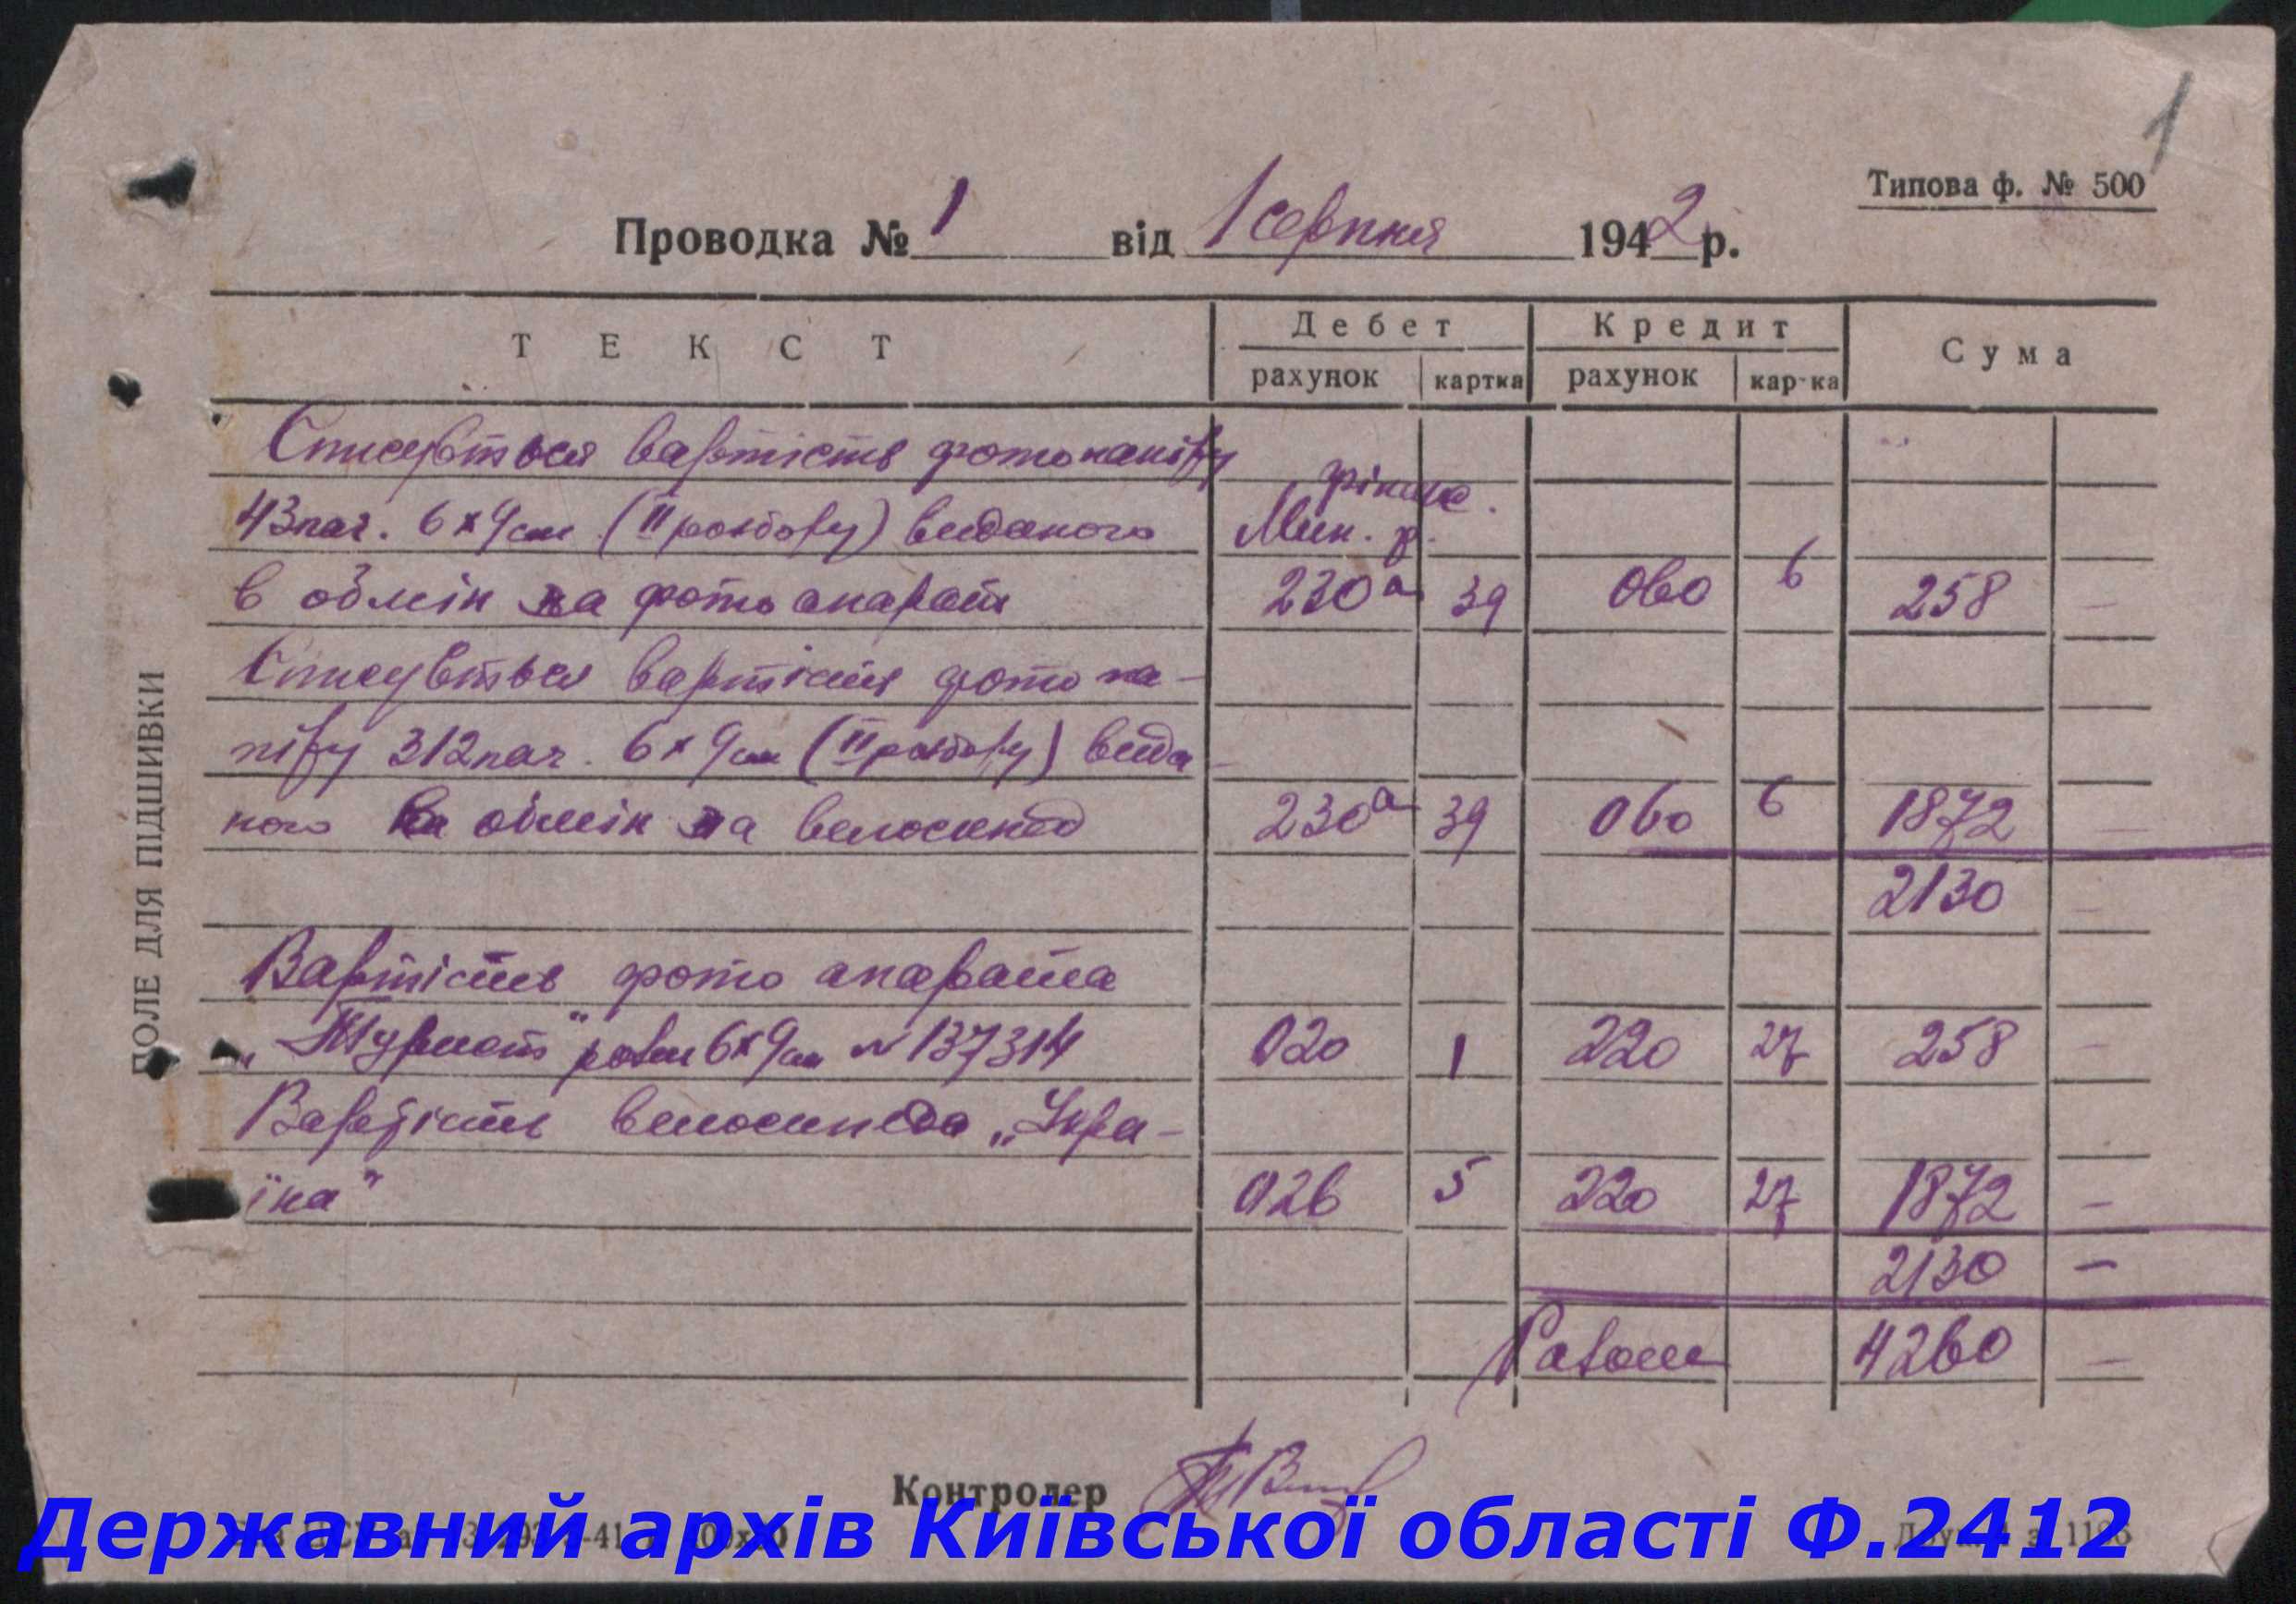 1
Типова ф. № 500
Проводка № 1 від 1 серпня 1942 р.
ТЕКСТ Дебет Кредит Сума
рахунок картка рахунок кар-ка
Списується вартість фотопапіру
43 пач. 6х9 см (II розбору) виданого Мин. р.
в обмін на фото апарат 230а 39 060 6 258 –
Списується вартість фото па-
піру 312 пач. 6х9 см (II розбору) вида-
ного в обмін на велосипед 230а 39 060 6 1872 –
2130 –
Вартість фото апарата
„Турист" розм 6х9 см № 137314 020 1 220 27 258 –
Вартість велосипеда „Укра-
їна" 026 5 220 27 1872 –
2130 –
Разом 4260 –
Контролер
ПОЛЕ ДЛЯ ПІДШИВКИ
Державний архів Київської області Ф.2412